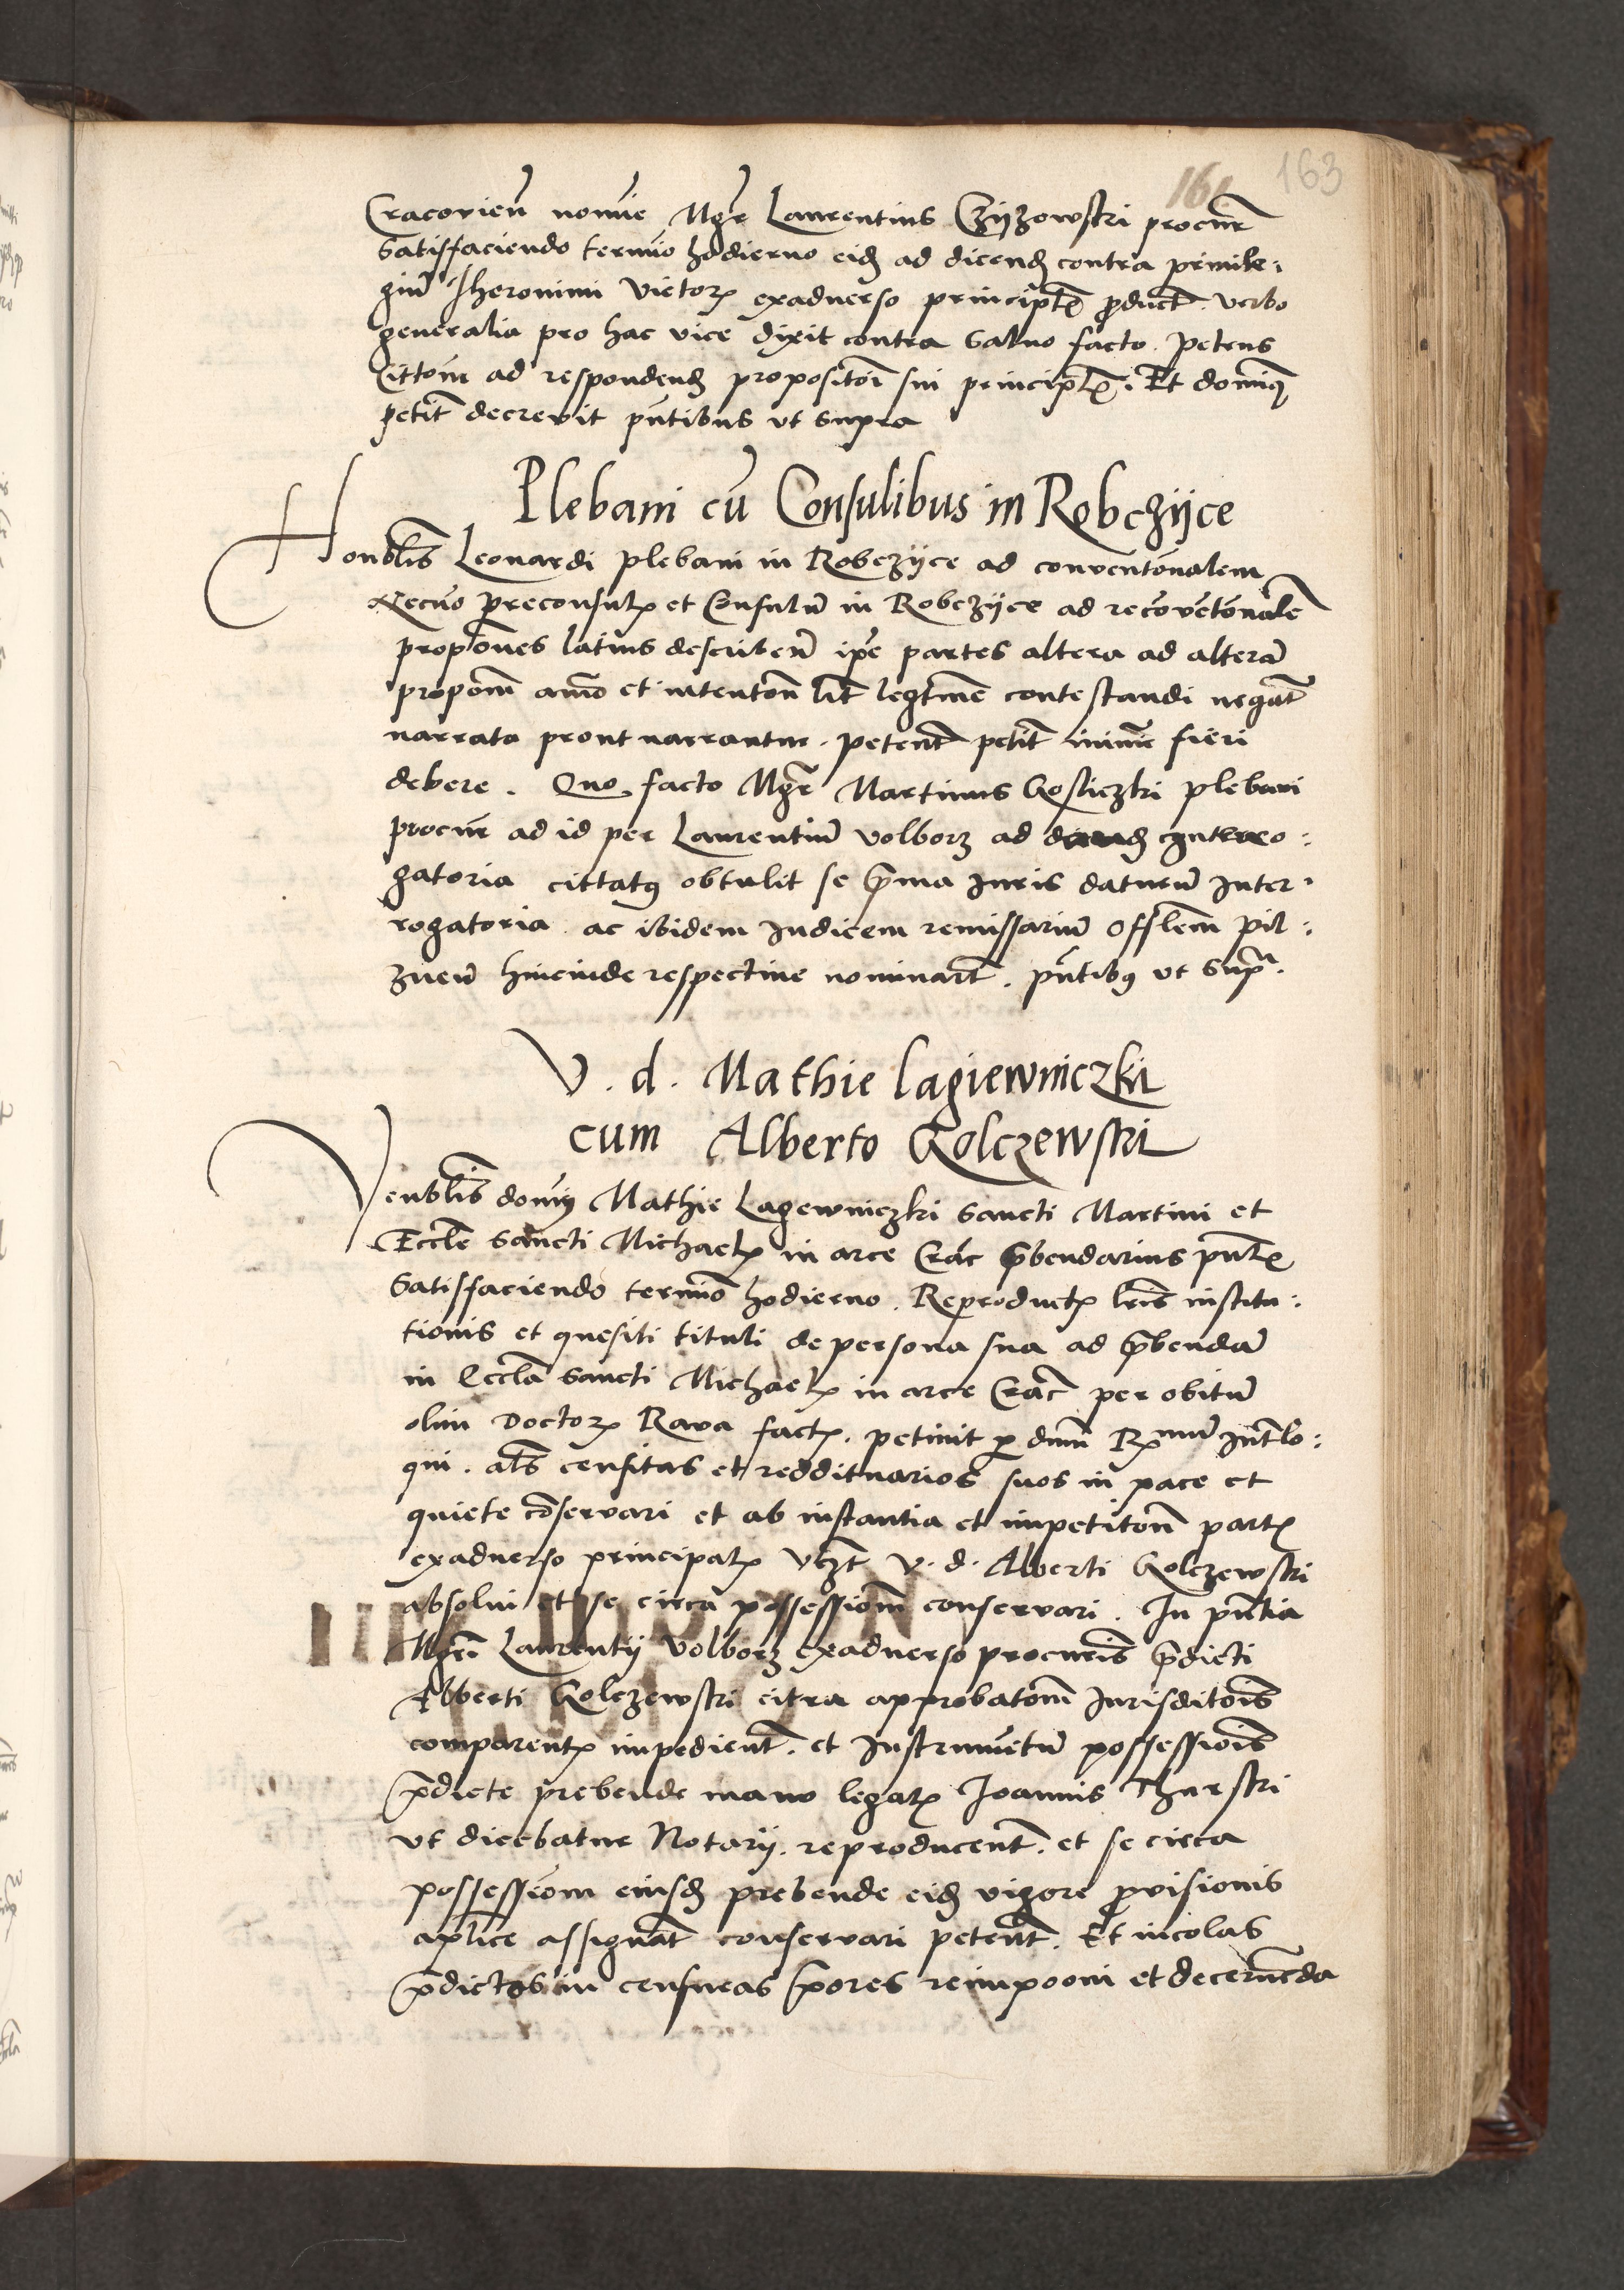 161 163
Cracovien̄ nomīe Mgr̄ Laurentius Czijzowski procur̄
satisfaciendo termīo hodierno eidꝫ ad dicendꝫ contra privile:
giū Jheronimi Victorꝭ exadverso principlꝭ ꝓduct̄. verbo
generalia pro hac vice dixit contra salvo facto. petens
Cittōm ad respondendꝫ propositōi sui principlꝭ. Et domīꝰ
petit̄ decrevit pn̄tibus ut supra
Plebani cū Consulibus in Robczijce
Honoblīs Leonardi plebani in Robczijce ad conventōnalem
Necnō preconsulꝭ et Consulū in Robczijce ad recōvētōnalē
propōnes latius describen̄ ip̄e partes altera ad alterā
propōm aīmo et intentōn lit̄ legtīme contestandi negāt
narrata prout narrantur. petent̄ petit̄ minīe fieri
debere. Quo facto Mgr̄ Martinus Gosliczki plebani
procur̄ ad id per Laurentiū Volborz ad dandꝫ interro:
gatoria cittatꝰ obtulit se p̄ma Juris daturū Inter:
rogatoria ac ibidem Judicem remissariū Offlēm pil:
znen̄ hincinde respective nominart̄. pn̄tibꝰ ut supᵃ.
V. d. Mathie lagiewniczki
cum Alberto Golczewski
Venblīs domīꝰ Mathie Lagewniczki sancti Martini et
Ecclīe sancti Michaelꝭ in arce Crac̄ p̄bendarius pn̄lꝭ
satisfaciendo termīo hodierno. Reproductꝭ lr̄is institu:
tionis et quesiti tituli de persona sua ad p̄bendā
in Ecclīa sancti Michaelꝭ in arce Crac̄ per obitū
olim Doctorꝭ Rava factꝭ. petivit ꝑ dnm̄ Rꝭmū Int̄lo:
qui. als̄ censitas et reddituarios suos in pace et
quiete cōservari et ab instantia et impetitōn partꝭ
exadverso principalꝭ vꝫt V. d. Alberti Golczewski
absolvi et se circa possessiōm conservari. In pn̄tia
Mgrī Laurentij Volborz exadverso procurīs p̄dicti
Alberti Golczewski citra approbatōm Jurisditōis
comparentꝭ impedient̄. et Instrumētū possessiōis
p̄dicte prebende manu legalꝭ Joannis Tharski
ut dicebatur Notarij. reproducent̄. et se circa
possessiōm eiusdꝫ prebende eidꝫ vigore ꝓvisionis
aplīce assignāt conservari petent̄. Et incolas
p̄dictos in censuras p̄ores reimponi et decernēda